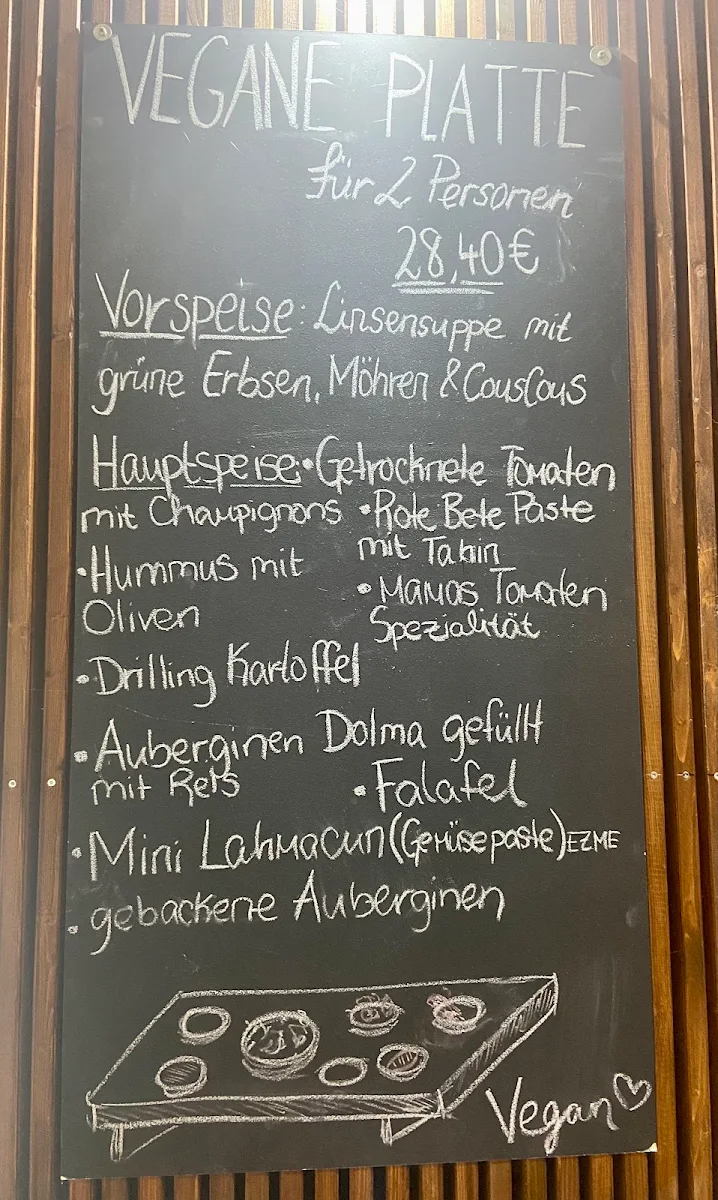 VEGANE PLATTE
für 2 Personen
28,40€
Vorspeise: Linsensuppe mit
grüne Erbsen, Möhren & CousCous
Hauptspeise: • Getrocknete Tomaten
mit Champignons • Rote Bete Paste
mit Tahin
• Hummus mit
Oliven
• Mamas Tomaten
Spezialität
• Drilling Kartoffel
• Auberginen Dolma gefüllt
mit Reis • Falafel
• Mini Lahmacun (Gemüsepaste) EZME
• gebackene Auberginen
Vegan